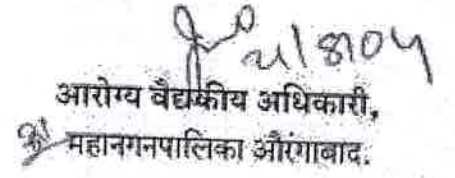 आरोग्य वैद्यकीय अधिकारी,
महानगनपालिका औरंगाबाद.